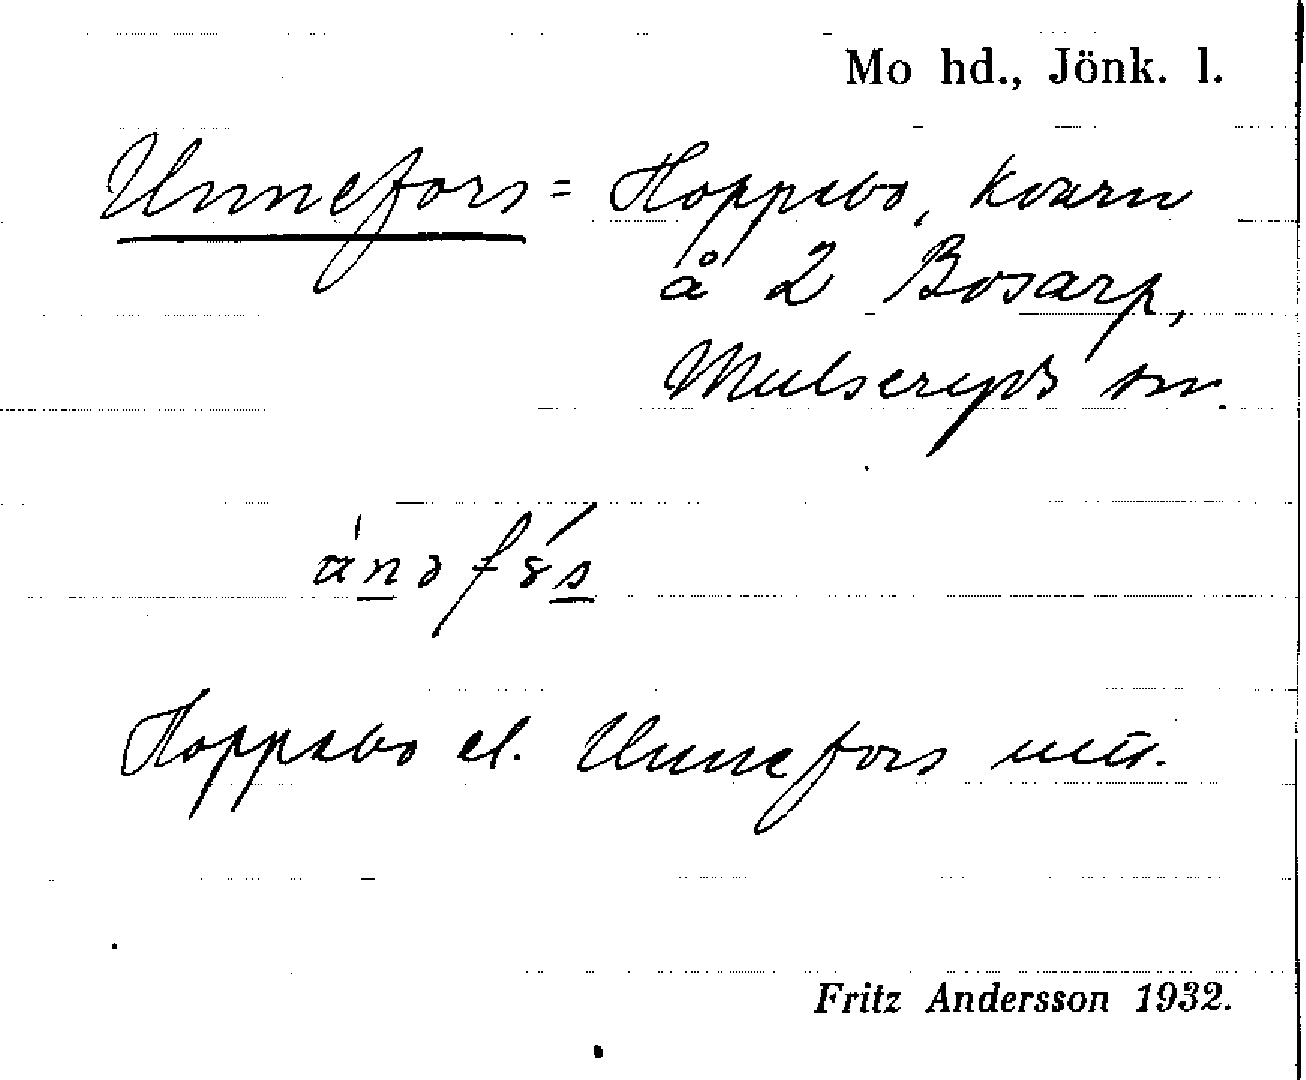 Mo hd., Jönk. l.
Unnefors = Hoppsbo, kvarn
å 2 Bosarp,
Mulseryds sn.
Hoppsbo el. Unnefors
Fritz Andersson 1932.